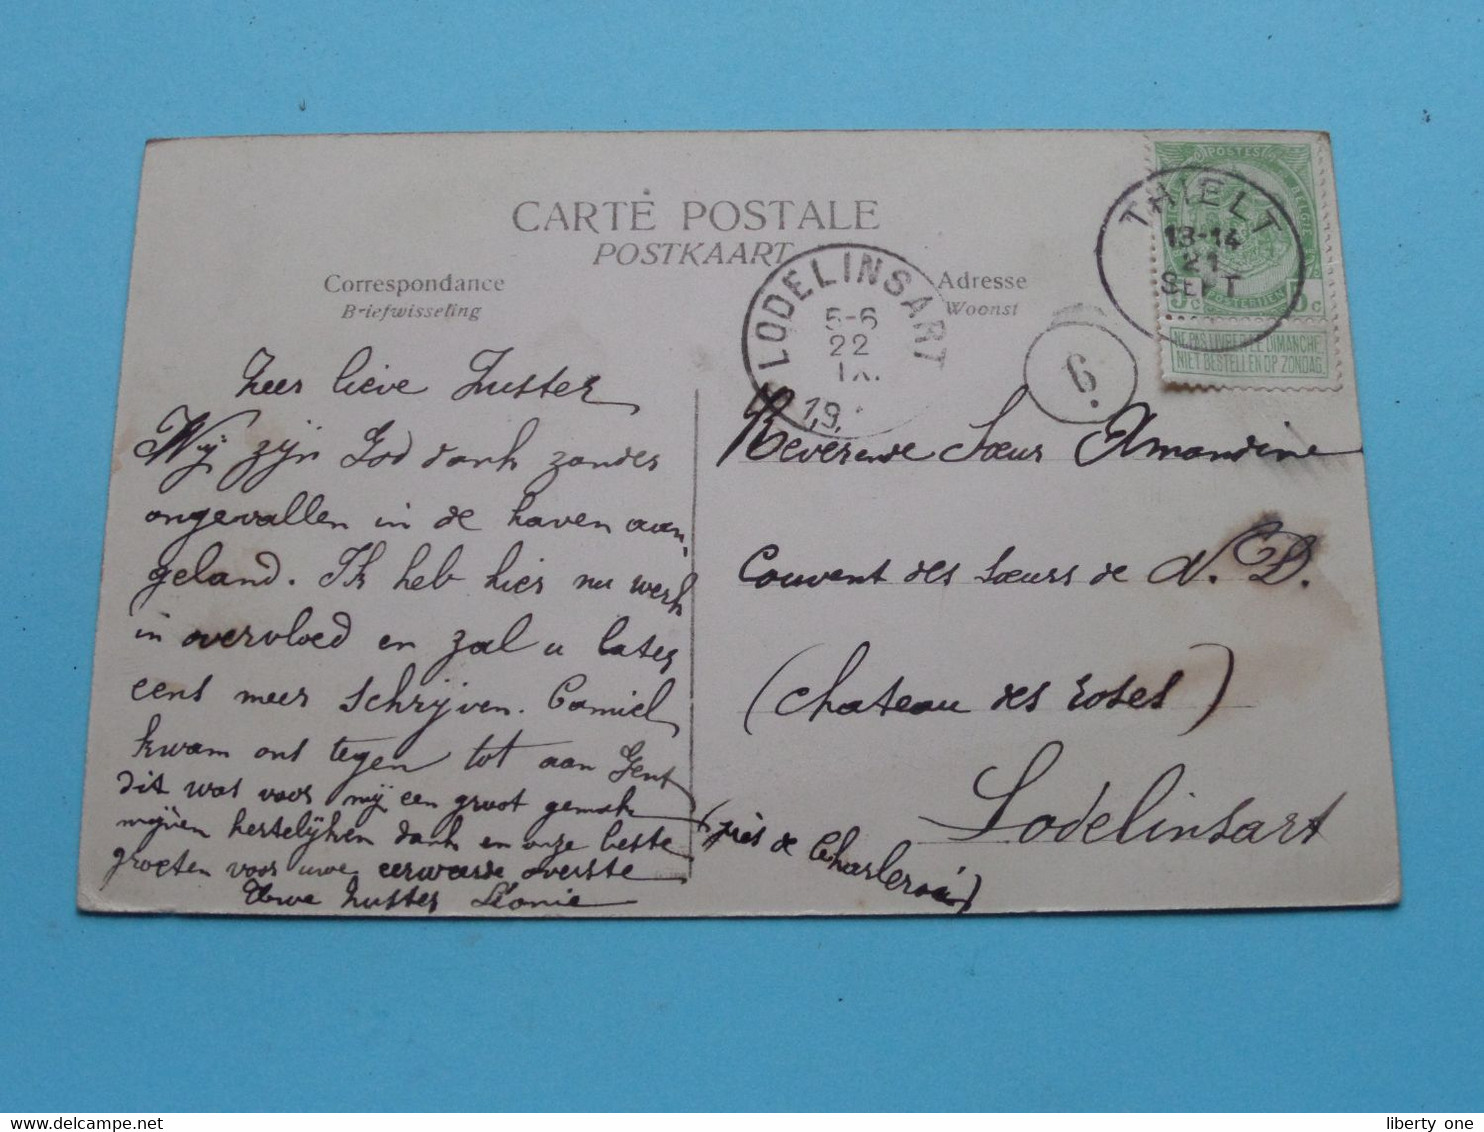 CARTE POSTALE
POSTKAART
Correspondance
Briefwisseling
Adresse
Woonst
THIELT
13-14
21
SEPT
POSTES
POSTERIJEN
5c 5c
NE PAS LIVRER LE DIMANCHE
NIET BESTELLEN OP ZONDAG
LODELINSART
5-6
22
IX.
19
6.
Zeer lieve Zuster
Wij zijn God dank zonder
ongevallen in de haven aan-
geland. Ik heb hier nu werk
in overvloed en zal u later
eens meer schrijven. Camiel
kwam ons tegen tot aan Gent
dit was voor mij een groot gemak
mijnen hertelijken dank en onze beste
groeten voor uwe eerweerde overste
Uwe Zuster Léonie
Reverende Sœur Amandine
Couvent des Sœurs de N. D.
(Chateau des roses)
Lodelinsart
(près de Charleroi)
liberty one